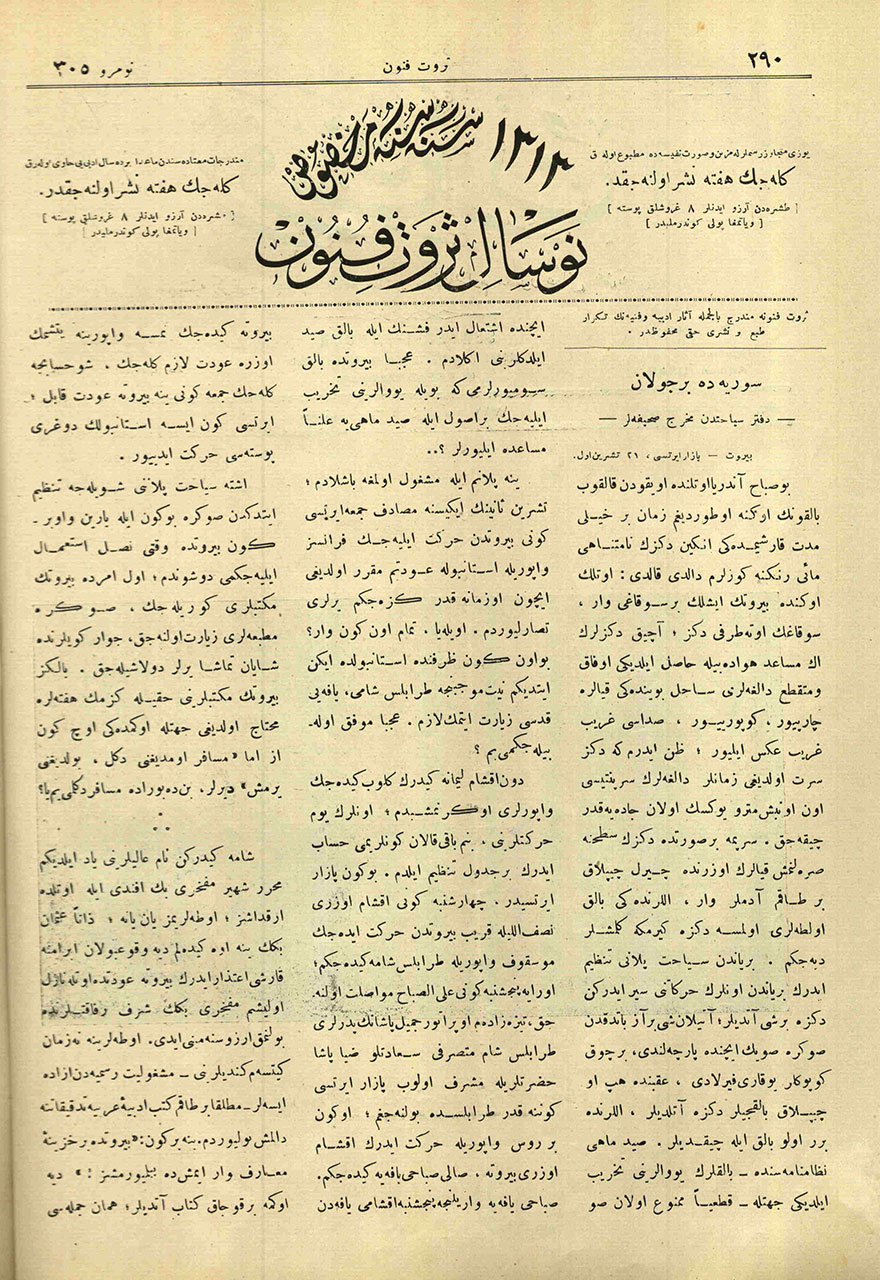 ٢٩٠
ثروت فنون
نومرو ٣٠٥
١٣١٣ سنه سنه مخصوص
نوسال ثروت فنون
یوزی متجاوز رسملرله مزین وصورت نفیسه ده مطبوع اوله رق
كله جك هفته نشر اولنه جقدر.
[ طشره دن آرزو ایدنلر ٨ غروشلق پوسته ]
[ ویا تمغا پولی كوندرملیدر ]
مندرجات معتاده سندن ماعدا برده سال ادبی یی حاوی اوله رق
كله جك هفته نشر اولنه جقدر.
[ طشره دن آرزو ایدنلر ٨ غروشلق پوسته ]
[ ویا تمغا پولی كوندرملیدر ]
ثروت فنونه مندرج بالجمله آثار ادبیه وفنیه نك تكرار
طبع و نشری حق محفوظدر .
سوریه ده بر جولان
— دفتر سیاحتدن مخرج صحیفه لر —
بیروت — بازار ایرتسی ، ٢١ تشرین اول.
بو صباح آندریا اوتلنده اویقودن قالقوب
بالقونك اوكنه اوطوردیغم زمان بر خیلی
مدت قارشیمده كی انكین دكزك نامتناهی
مائی رنكنه كوزلرم دالدی قالدی : اوتلك
اوكنده بیروتك ایشلك بر سوقاغی وار ،
سوقاغك اوته طرفی دكز ؛ آچیق دكزلرك
اك مساعد هواده بیله حاصل ایلدیكی اوفاق
ومتقطع دالغه لری ساحل بوینده كی قیالره
چارپیور ، كوپورییور ، صداسی غریب
غریب عكس ایلیور ؛ ظن ایدرم كه دكز
سرت اولدیغی زمانلر دالغه لرك سرپنتیسی
اون اونبش مترو یوكسك اولان جاده یه قدر
چیقه جق . سرپمه بر صورتده دكزك سطحنه
صره لنمش قیالرك اوزرنده چیریل چیپلاق
بر طاقم آدملر وار ، اللرنده كی بالق
اولطه لری اولمسه دكزه كیرمكه كلمشلر
دیه جكم . بریاندن سیاحت پلانی تنظیم
ایدرك بریاندن اونلرك حركاتنی سیر ایدركن
دكزه برشی آتدیلر؛ آتیلان شی برآز باتدقدن
صوكره صویك ایچنده پارچه لندی، برچوق
كوپوكلر یوقاری فیرلادی ، عقبنده هپ او
چیپلاق بالقجیلر دكزه آتلدیلر ، اللرنده
برر اولو بالق ایله چیقدیلر . صید ماهی
نظامنامه سنده — بالقلرك یووالرینی تخریب
ایلدیكی جهتله — قطعیاً ممنوع اولان صو
ایچنده اشتعال ایدر فشنك ایله بالق صید
ایلدكلرینی اكلادم . عجبا بیروتده بالق
سومیورلرمی كه بویله یووالرینی تخریب
ایلیه جك بر اصول ایله صید ماهی یه علناً
مساعده ایلیورلر ؟..
ینه پلانم ایله مشغول اولمغه باشلادم ؛
تشرین ثانینك ایكیسنه مصادف جمعه ایرتسی
كونی بیروتدن حركت ایلیه جك فرانسز
واپوریله استانبوله عودتم مقرر اولدیغی
ایچون اوزمانه قدر كزه جكم یرلری
تصارلیوردم . اویله یا ، تمام اون كون وار؟
بواون كون ظرفنده استانبولده ایكن
ایتدیكم نیت موجبنجه طرابلس شامی، یافه یی
قدسی زیارت ایتمك لازم . عجبا موفق اوله
بیله جكمی یم ؟
دون اقشام لیمانه كیدرك كلوب كیده جك
واپورلری اوكرنمشیدم ؛ اونلرك یوم
حركتلرینی ، بنم باقی قالان كونلریمی حساب
ایدرك بر جدول تنظیم ایلدم . بوكون پازار
ایرتسیدر ، چهارشنبه كونی اقشام اوزری
نصف اللیله قریب بیروتدن حركت ایده جك
موسقوف واپوریله طرابلس شامه كیده جكم؛
اورایه پنجشنبه كونی علی الصباح مواصلت اولنه
حق، تیزه زاده م اوپراتور جمیل پاشانك پدرلری
طرابلس شام متصرفی سعادتلو ضیا پاشا
حضرتلریله مشرف اولوب پازار ایرتسی
كوننه قدر طرابلسده بولنه جغم ؛ اوكون
بر روس واپوریله حركت ایدرك اقشام
اوزری بیروته ، صالی صباحی یافه یه كیده جكم.
صباحی یافه یه وارلنجه پنجشنبه اقشامی یافه دن
بیروته كیده جك نمسه واپورینه یتشمك
اوزره عودت لازم كله جك . شو حسابجه
كله جك جمعه كونی ینه بیروته عودت قابل ؛
ایرتسی كون ایسه استانبولك دوغری
پوسته سی حركت ایدییور .
اشته سیاحت پلاننی شویله جه تنظیم
ایتدكدن صوكره بوكون ایله یارین واوبر
كون بیروتده وقتی نصل استعمال
ایلیه جكمی دوشوندم ؛ اول امرده بیروتك
مكتبلری كوریله جك . صوكره
مطبعه لری زیارت اولنه جق، جوار كویلرنده
شایان تماشا یرلر دولاشیله جق . یالكز
بیروتك مكتبلرینی حقیله كزمك هفته لره
محتاج اولدیغی جهتله اوكمده كی اوچ كون
از اما «مسافر اومدیغنی دكل ، بولدیغنی
یرمش» دیرلر، بن ده بوراده مسافر دكلمی یم یا؟
* *
شامه كیدركن نام عالیلرینی یاد ایلدیكم
محرر شهیر مفخری بك افندی ایله اوتلده
ارقداشز ؛ اوطه لریمز یان یانه ؛ ذاتاً عثمان
بكك ینه اوه كیده لم دیه وقوعبولان ابرامنه
قارشی اعتذار ایدرك بیروته عودتده اوتله نازل
اولیشم مفخری بكك شرف رفاقتلرنده
بولنمق ارزوسنه مبنی ایدی. اوطه لرینه نه زمان
كیتسه م كندیلرینی — مشغولیت رسمیه دن ازاده
ایسه لر — مطلقا بر طاقم كتب ادبیه عربیه تدقیقاتنه
دالمش بولیوردم. ینه بركون: «بیروتده بر خزینۀ
معارف وار ایمش ده بیلیورمشز : » دیه
اوكمه بر قوجاق كتاب آتدیلر؛ همان جمله سی